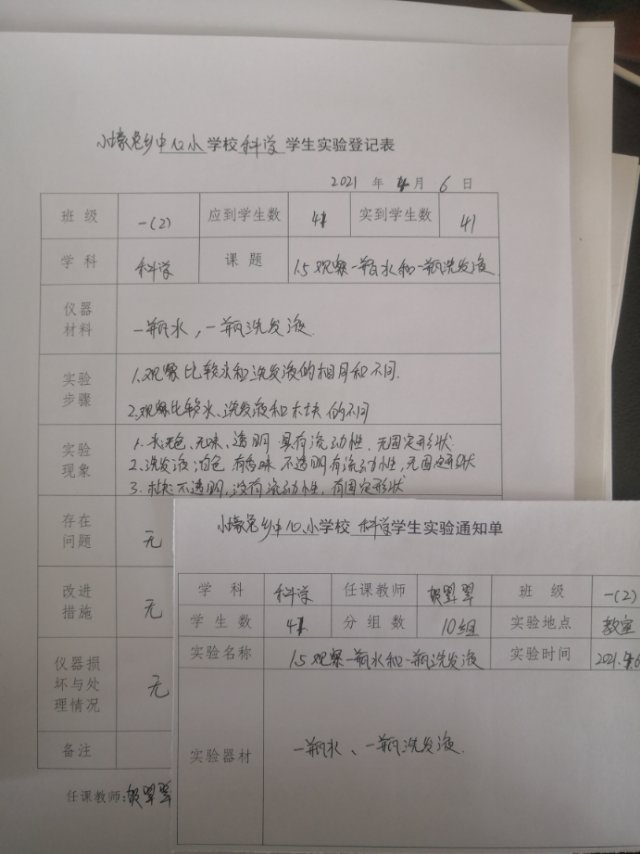 小壕兔乡中心小学校科学学生实验登记表
2021 年 4 月 6 日
班 级 一(2) 应到学生数 41 实到学生数 41
学 科 科学 课 题 1.5 观察一瓶水和一瓶洗发液
仪器材料 一瓶水，一瓶洗发液
实验步骤 1.观察比较水和洗发液的相同和不同.
2.观察比较水、洗发液和木块的不同
实验现象 1.水无色、无味、透明 具有流动性，无固定形状
2.洗发液：白色 有香味 不透明有流动性，无固定形状
3.木块不透明，没有流动性，有固定形状
存在问题 无
改进措施 无
仪器损坏与处理情况 无
备注
任课教师：
小壕兔乡中心小学校 科学学生实验通知单
学 科 科学 任课教师 班 级 一(2)
学 生 数 41 分 组 数 10组 实验地点 教室
实验名称 1.5 观察一瓶水和一瓶洗发液 实验时间 2021.4.6
实验器材 一瓶水、一瓶洗发液.